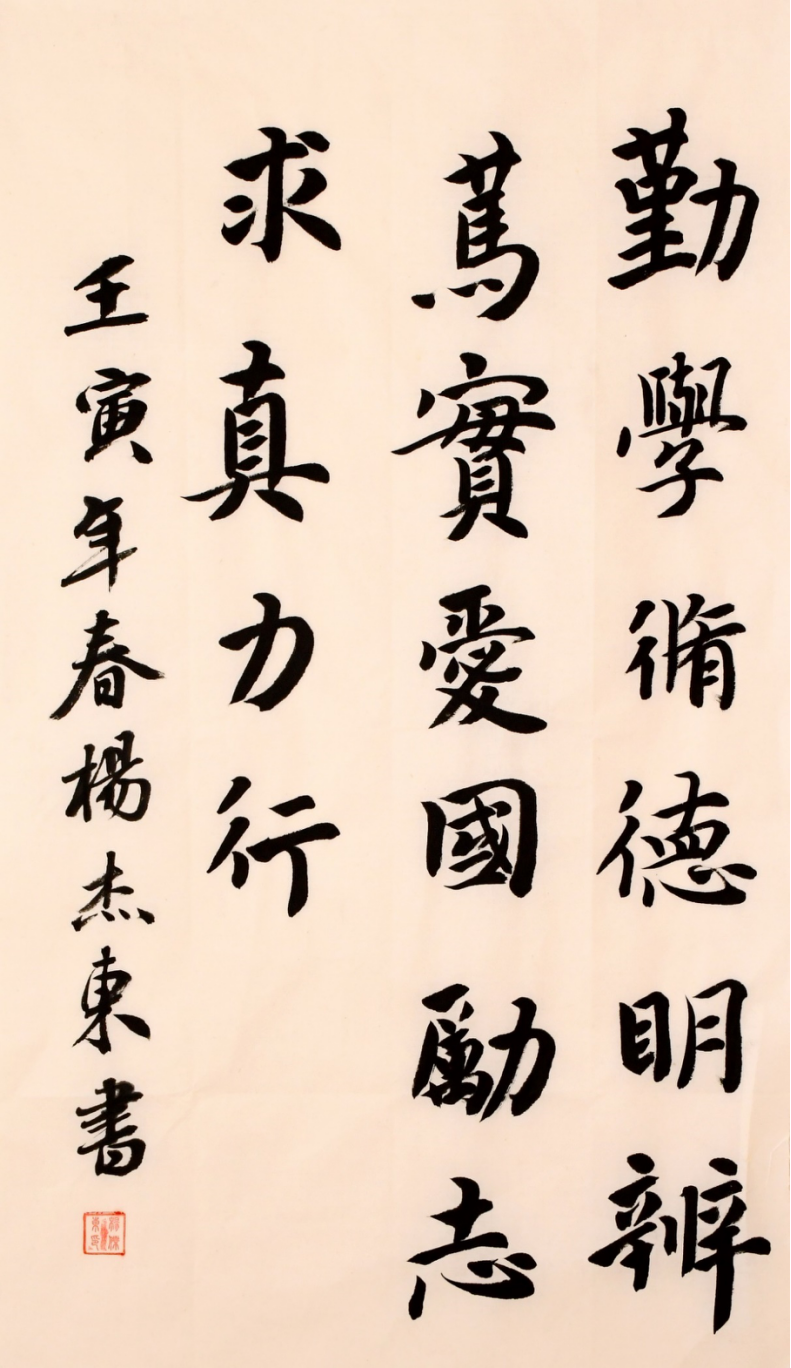 勤學脩德明辨
篤實愛國勵志
求真力行
壬寅年春楊杰東書